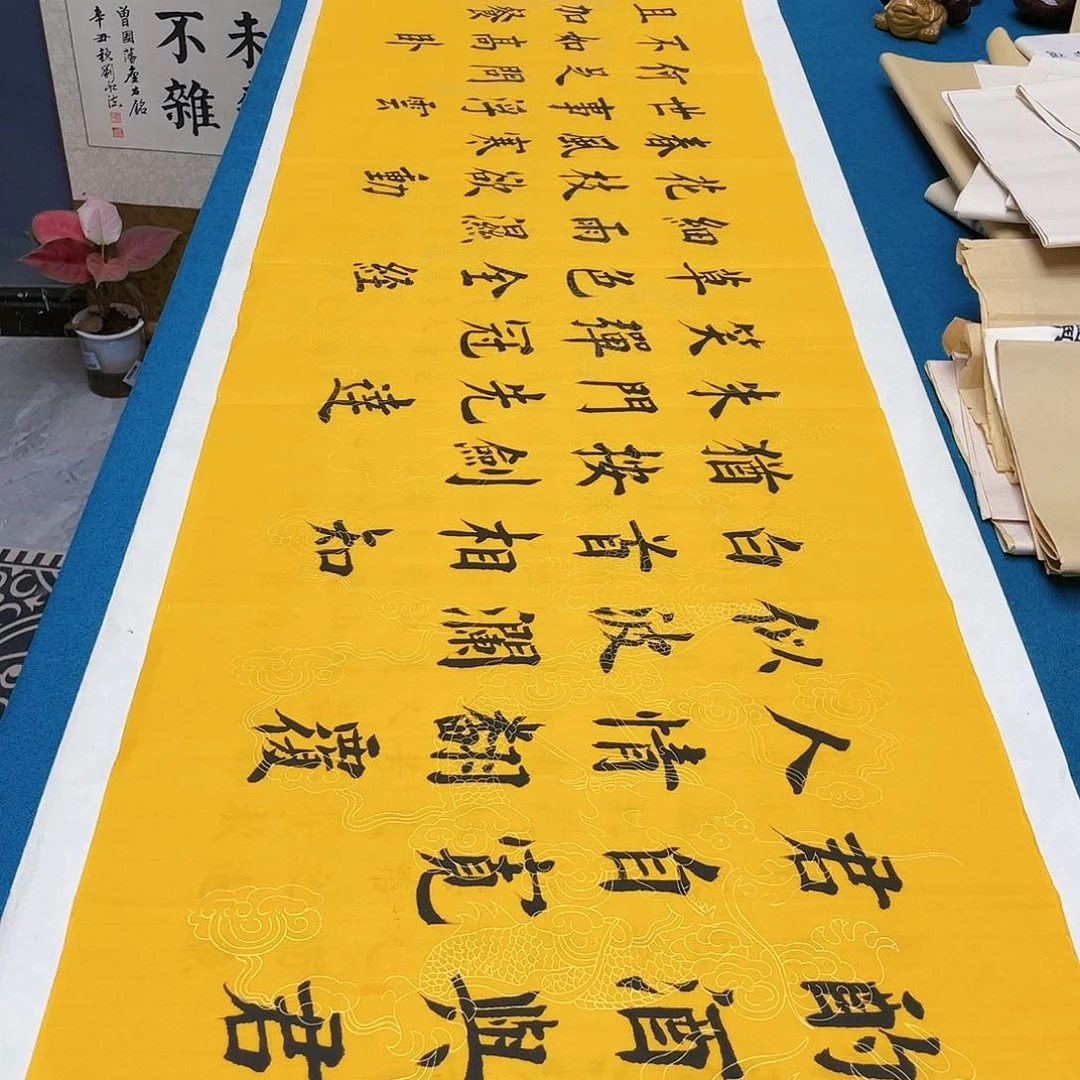 酌酒與君
君自寬
人情翻覆
似波瀾
白首相知
猶按劍
朱門先達
笑彈冠
草色全經
細雨濕
花枝欲動
春風寒
世事浮雲
何足問
不如高臥
且加餐
未
不雜
曾國藩座右銘
辛丑秋劉